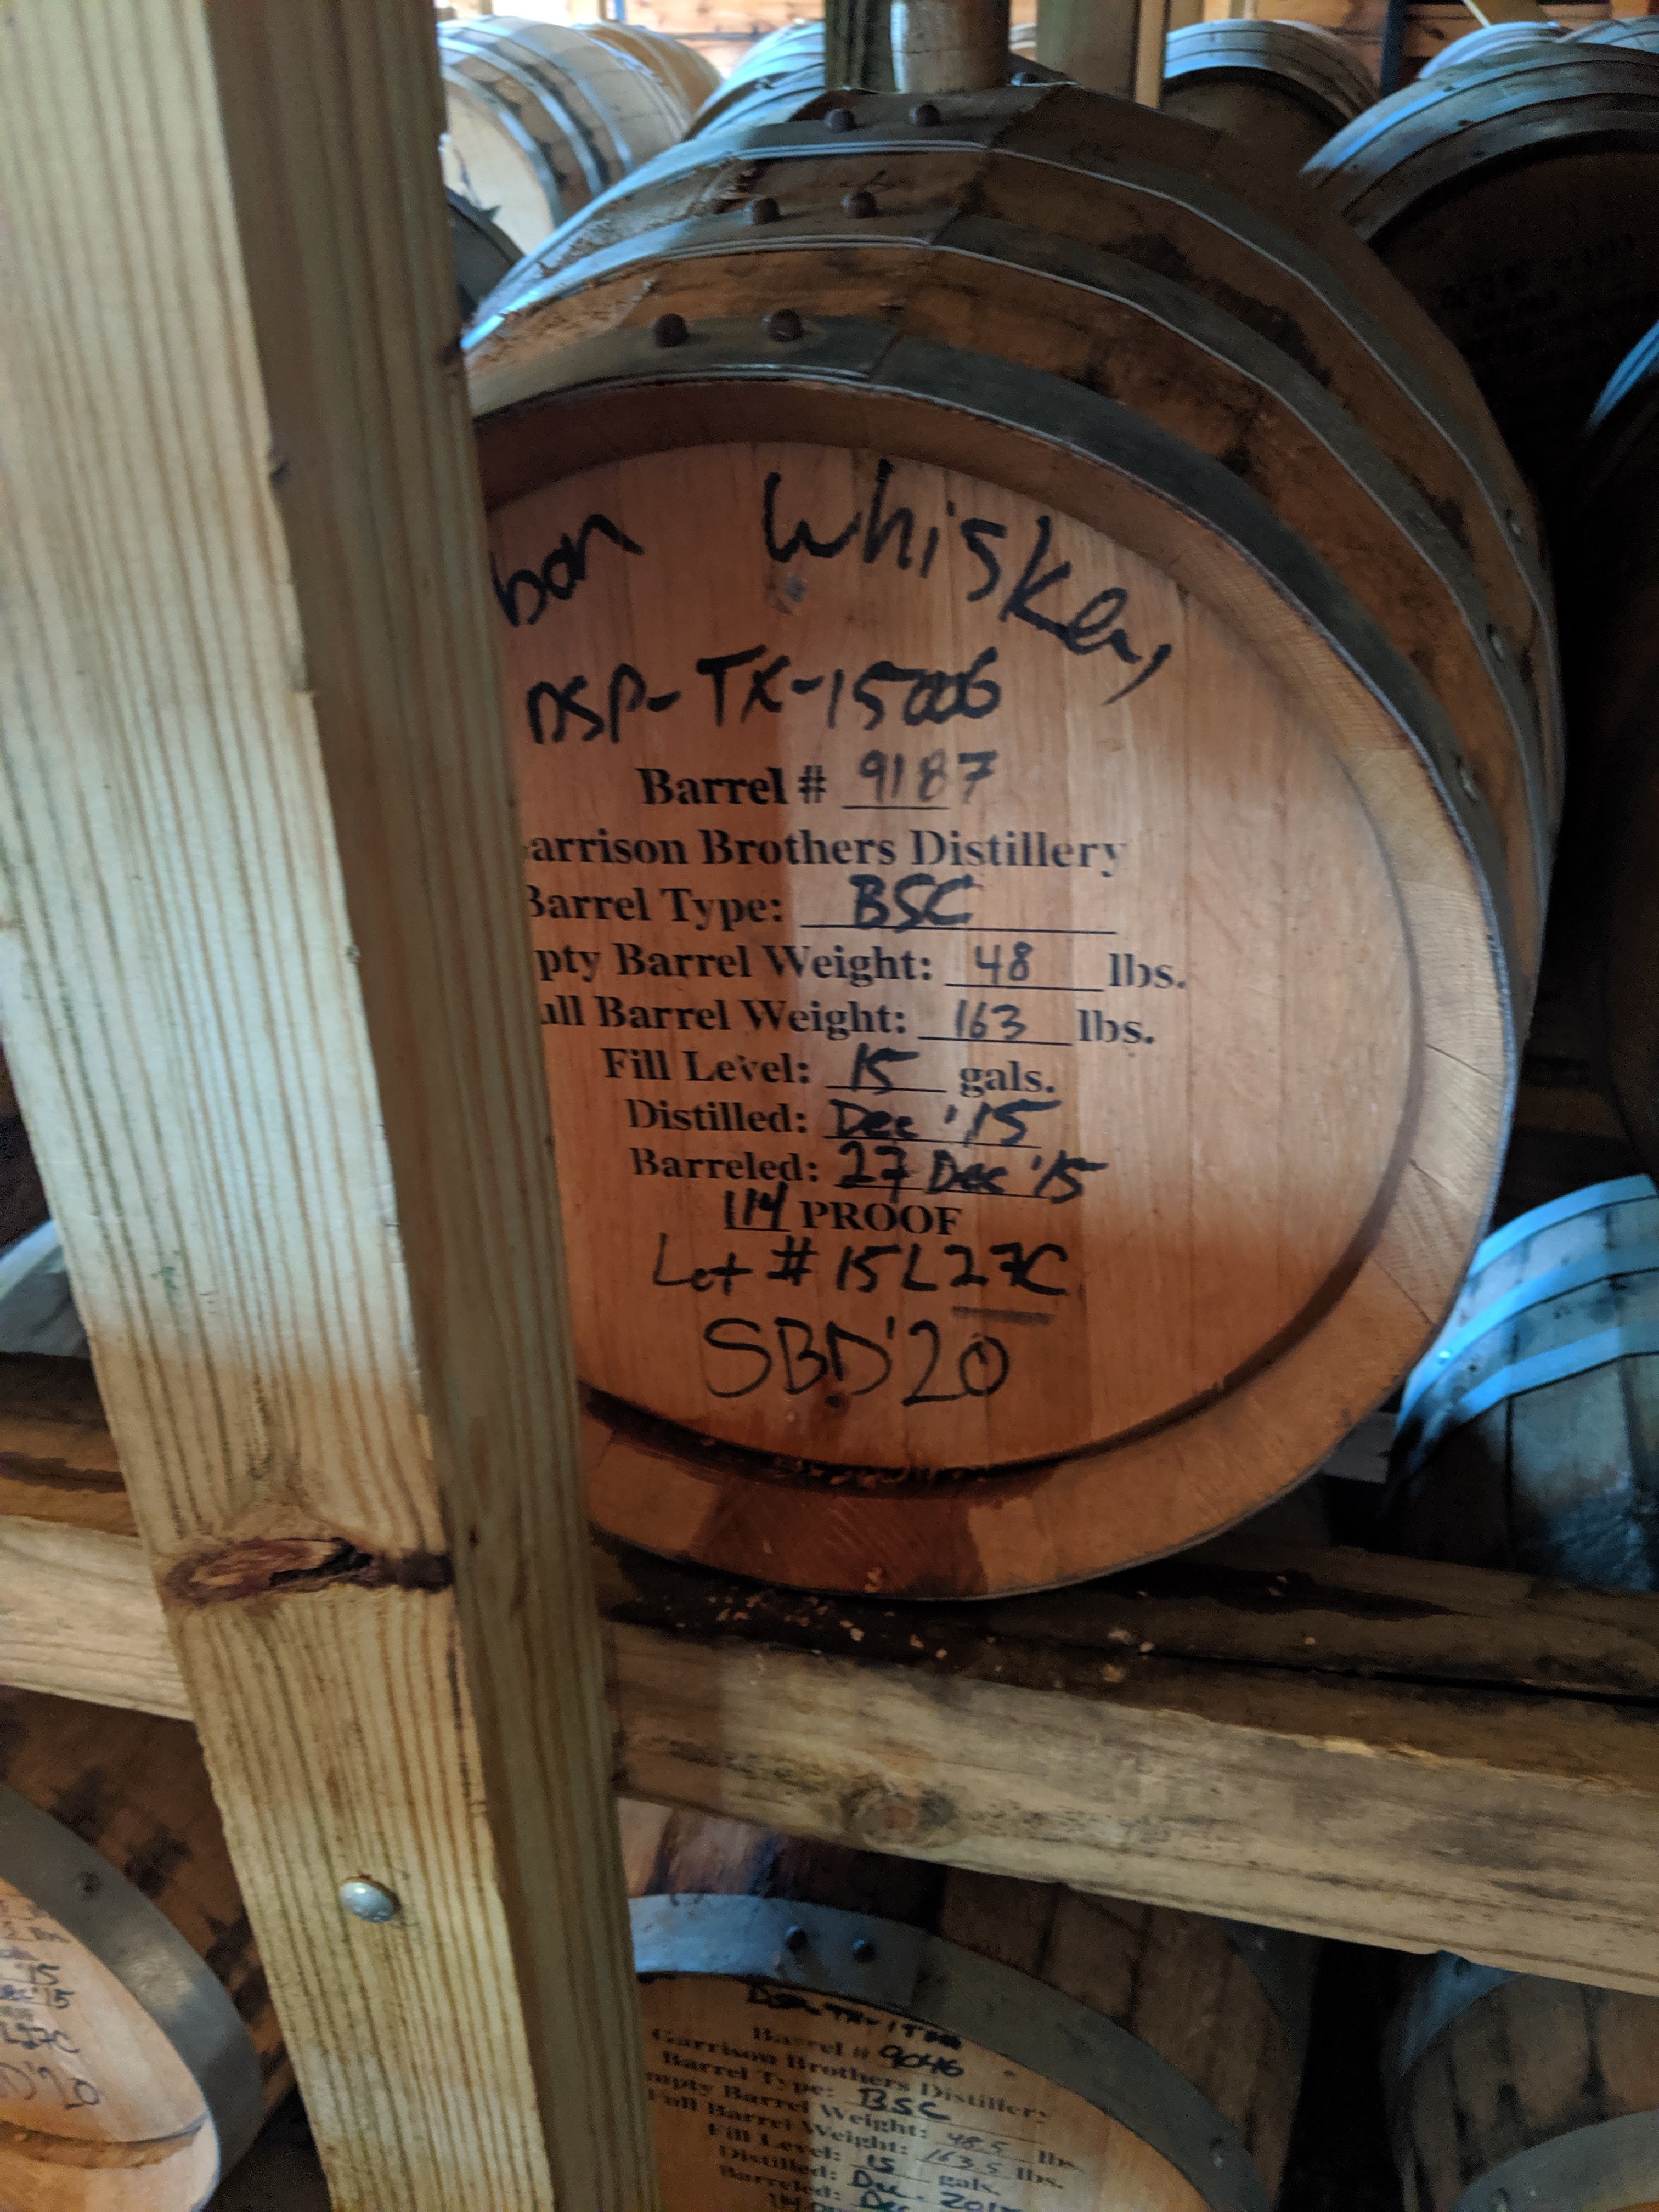 bon Whiskey
DSP-TX-15006
Barrel # 9187
arrison Brothers Distillery
Barrel Type: BSC
pty Barrel Weight: 48 lbs.
ull Barrel Weight: 163 lbs.
Fill Level: 15 gals.
Distilled: Dec '15
Barreled: 27 Dec '15
114 PROOF
Lot # 15L27C
SBD'20
Barrel # 9046
Garrison Brothers Distillery
Barrel Type: BSC
mpty Barrel Weight: 48.5 lbs.
Full Barrel Weight: 163.5 lbs.
Fill Level: 15 gals.
Distilled: Dec. 201
Barreled: Dec
L27C
D'20